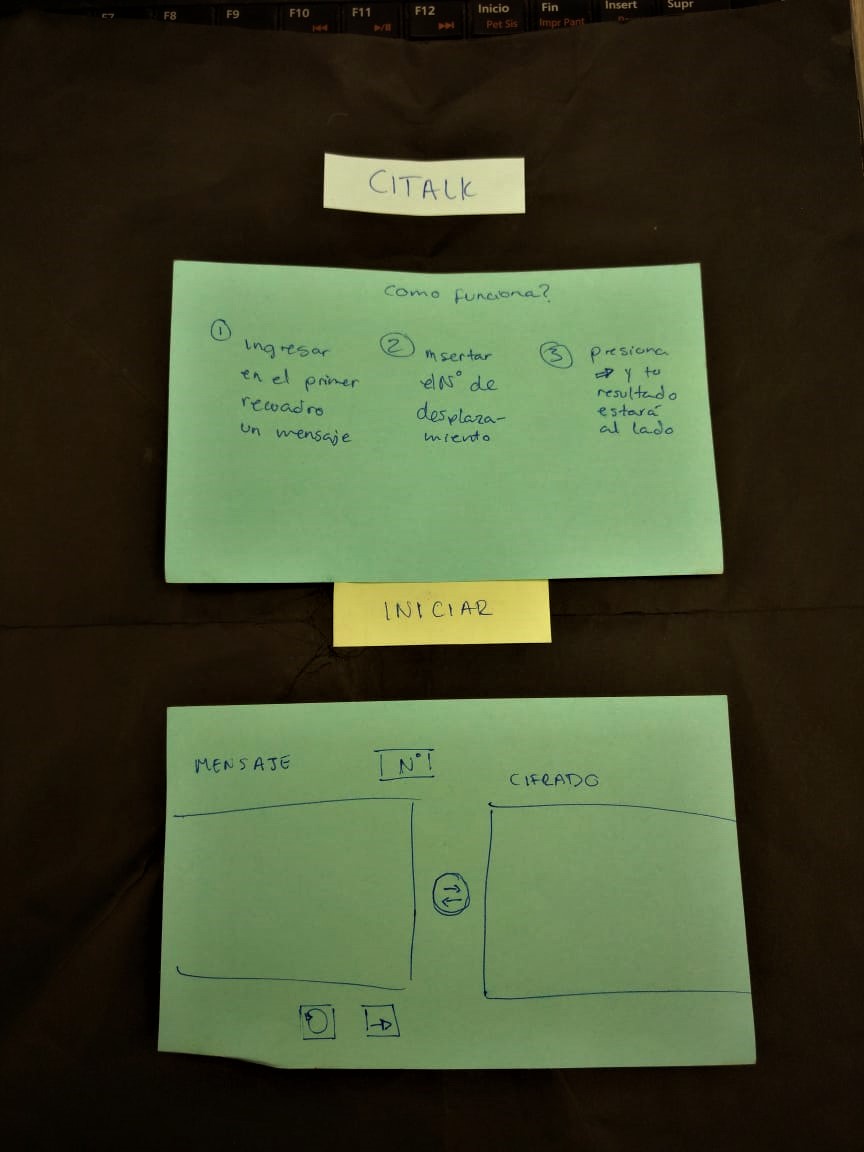 F7 F8 F9 F10 F11 F12 Inicio Fin Insert Supr
Pet Sis Impr Pant
CITALK
Como funciona?
1
Ingresar
en el primer
recuadro
un mensaje
2
Insertar
el N° de
desplaza-
miento
3
presiona
⇒ y tu
resultado
estará
al lado
INICIAR
MENSAJE
N°
CIFRADO